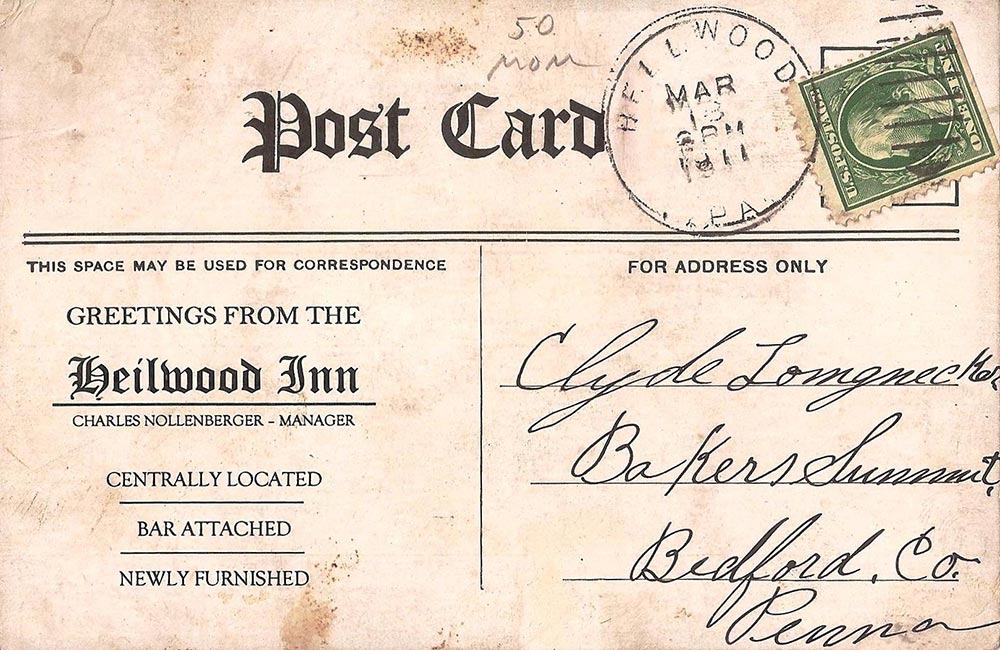 50
mom
Post Card
HEILWOOD
MAR
13
2PM
1911
PA.
U.S. POSTAGE
ONE CENT ONE
THIS SPACE MAY BE USED FOR CORRESPONDENCE
FOR ADDRESS ONLY
GREETINGS FROM THE
Heilwood Inn
CHARLES NOLLENBERGER - MANAGER
CENTRALLY LOCATED
BAR ATTACHED
NEWLY FURNISHED
Clyde Longnecker
Bakers Summit,
Bedford, Co.
Penna